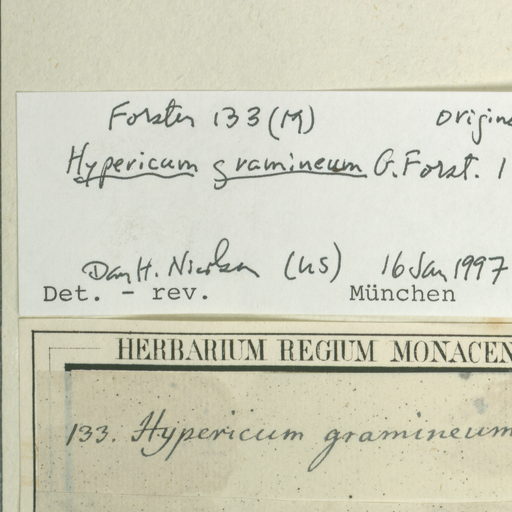 Forster 133 (M) origina
Hypericum gramineum G. Forst. 1
Dan H. Nicolson (US) 16 Jan 1997
Det. - rev. München
HERBARIUM REGIUM MONACEN
133. Hypericum gramineum